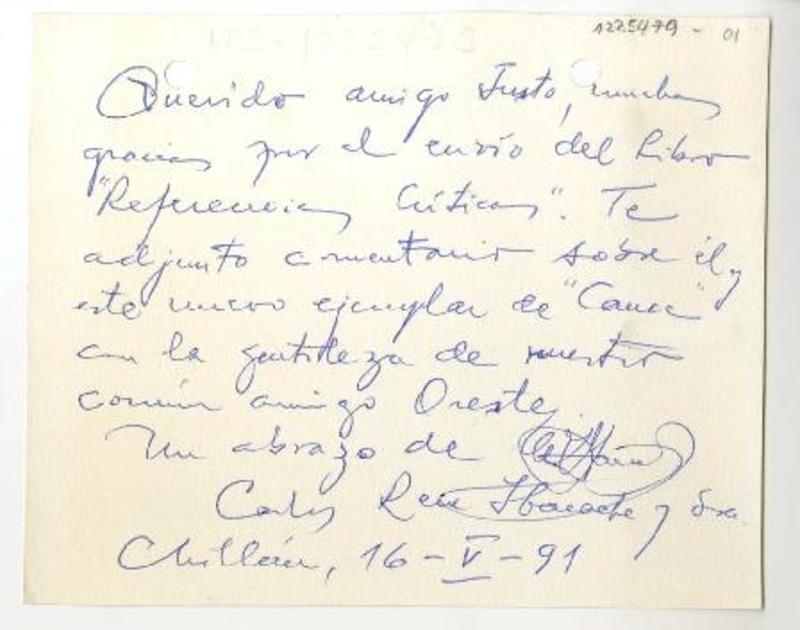 1225479-01
Querido amigo Justo, muchas
gracias por el envío del libro
"Referencias Críticas". Te
adjunto comentario sobre él y
este nuevo ejemplar de "Cauce"
con la gentileza de nuestro
común amigo Oreste.
Un abrazo de
Carlos René Ibacache y Sra.
Chillán, 16-V-91